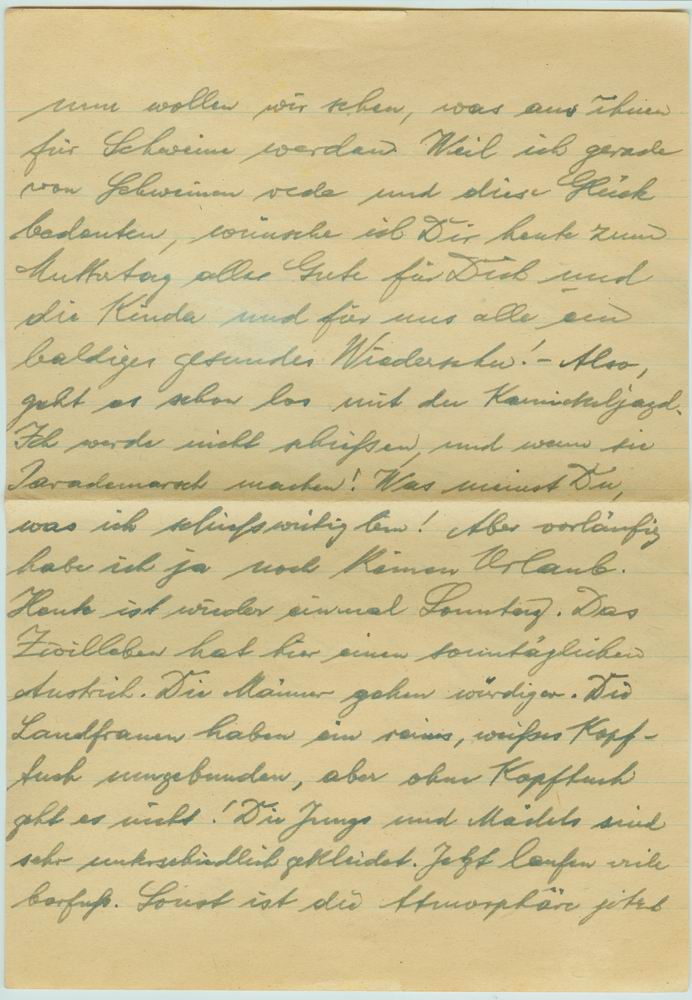 nun wollen wir sehen, was aus ihnen
für Schweine werden. Weil ich gerade
von Schweinen rede und diese Glück
bedeuten, wünsche ich Dir heute zum
Muttertag alles Gute für Dich und
die Kinder und für uns alle ein
baldiges gesundes Wiedersehn! - Also,
geht es schon los mit der Kanickeljagd.
Ich werde nicht schießen, und wenn sie
Parademarsch machen! Was meinst Du,
was ich schießwütig bin! Aber vorläufig
habe ich ja noch keinen Urlaub.
Heute ist wieder einmal Sonntag. Das
Zivilleben hat hier einen sonntäglichen
Anstrich. Die Männer gehen würdiger. Die
Landfrauen haben ein reines, weißes Kopf-
tuch umgebunden, aber ohne Kopftuch
geht es nicht! Die Jungs und Mädels sind
sehr unterschiedlich gekleidet. Jetzt laufen viele
barfuß. Sonst ist die Atmosphäre jetzt